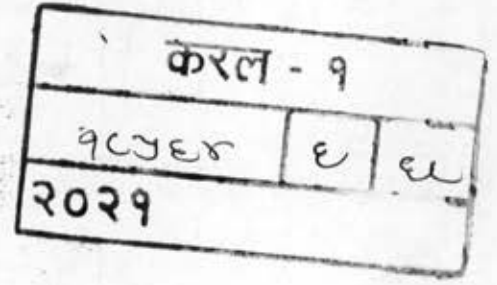 करल - १
१८५६४ ६
२०२१